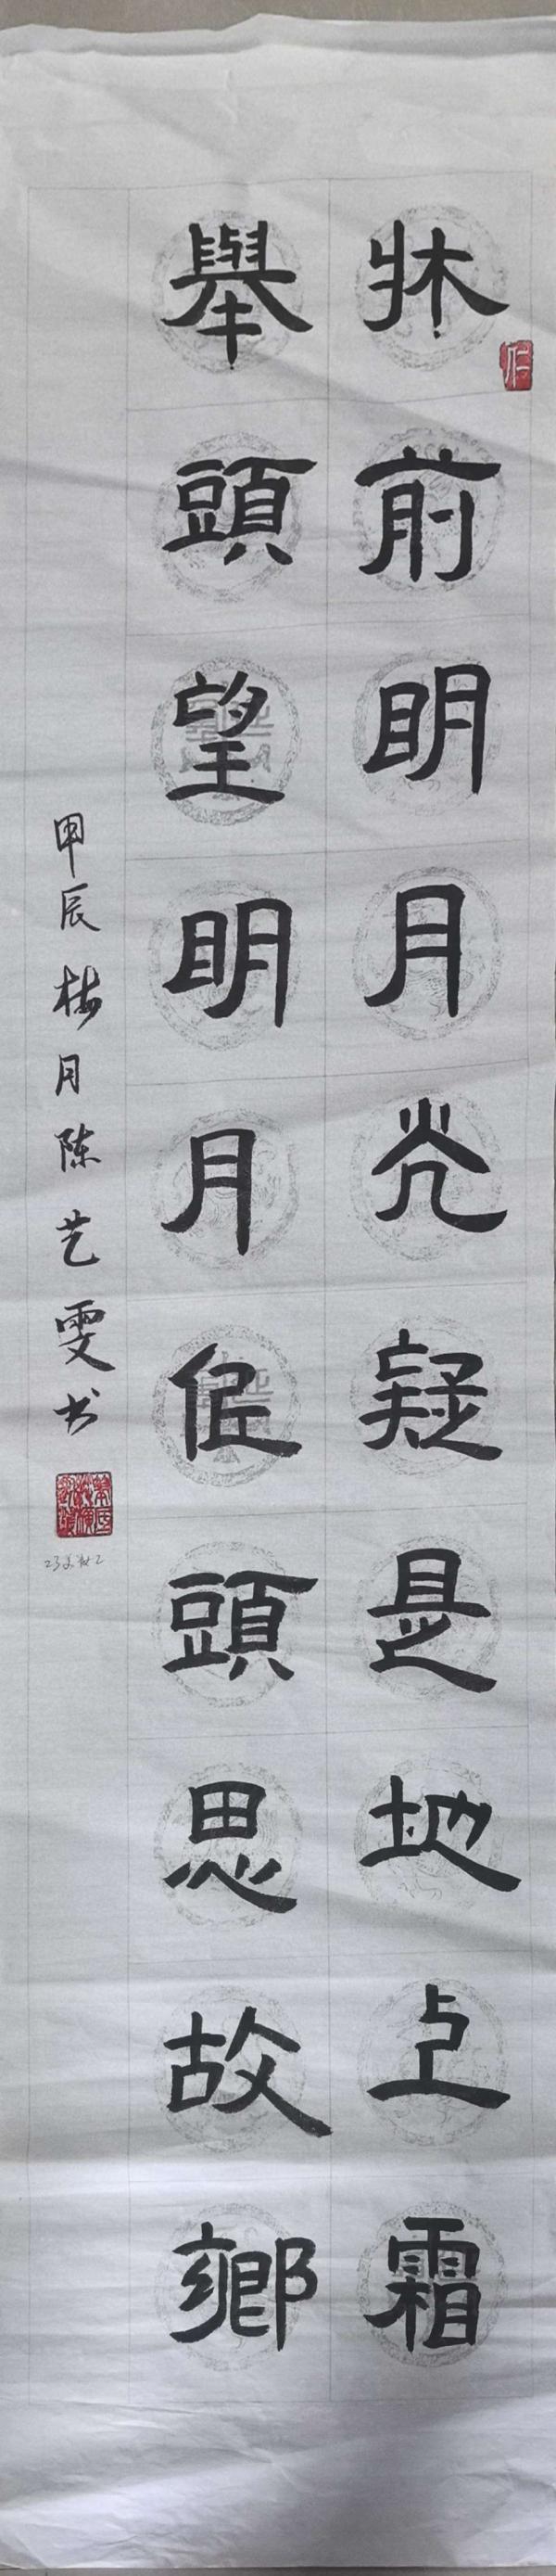 牀前明月光疑是地上霜
舉頭望明月低頭思故鄉
甲辰梅月陈艺雯书